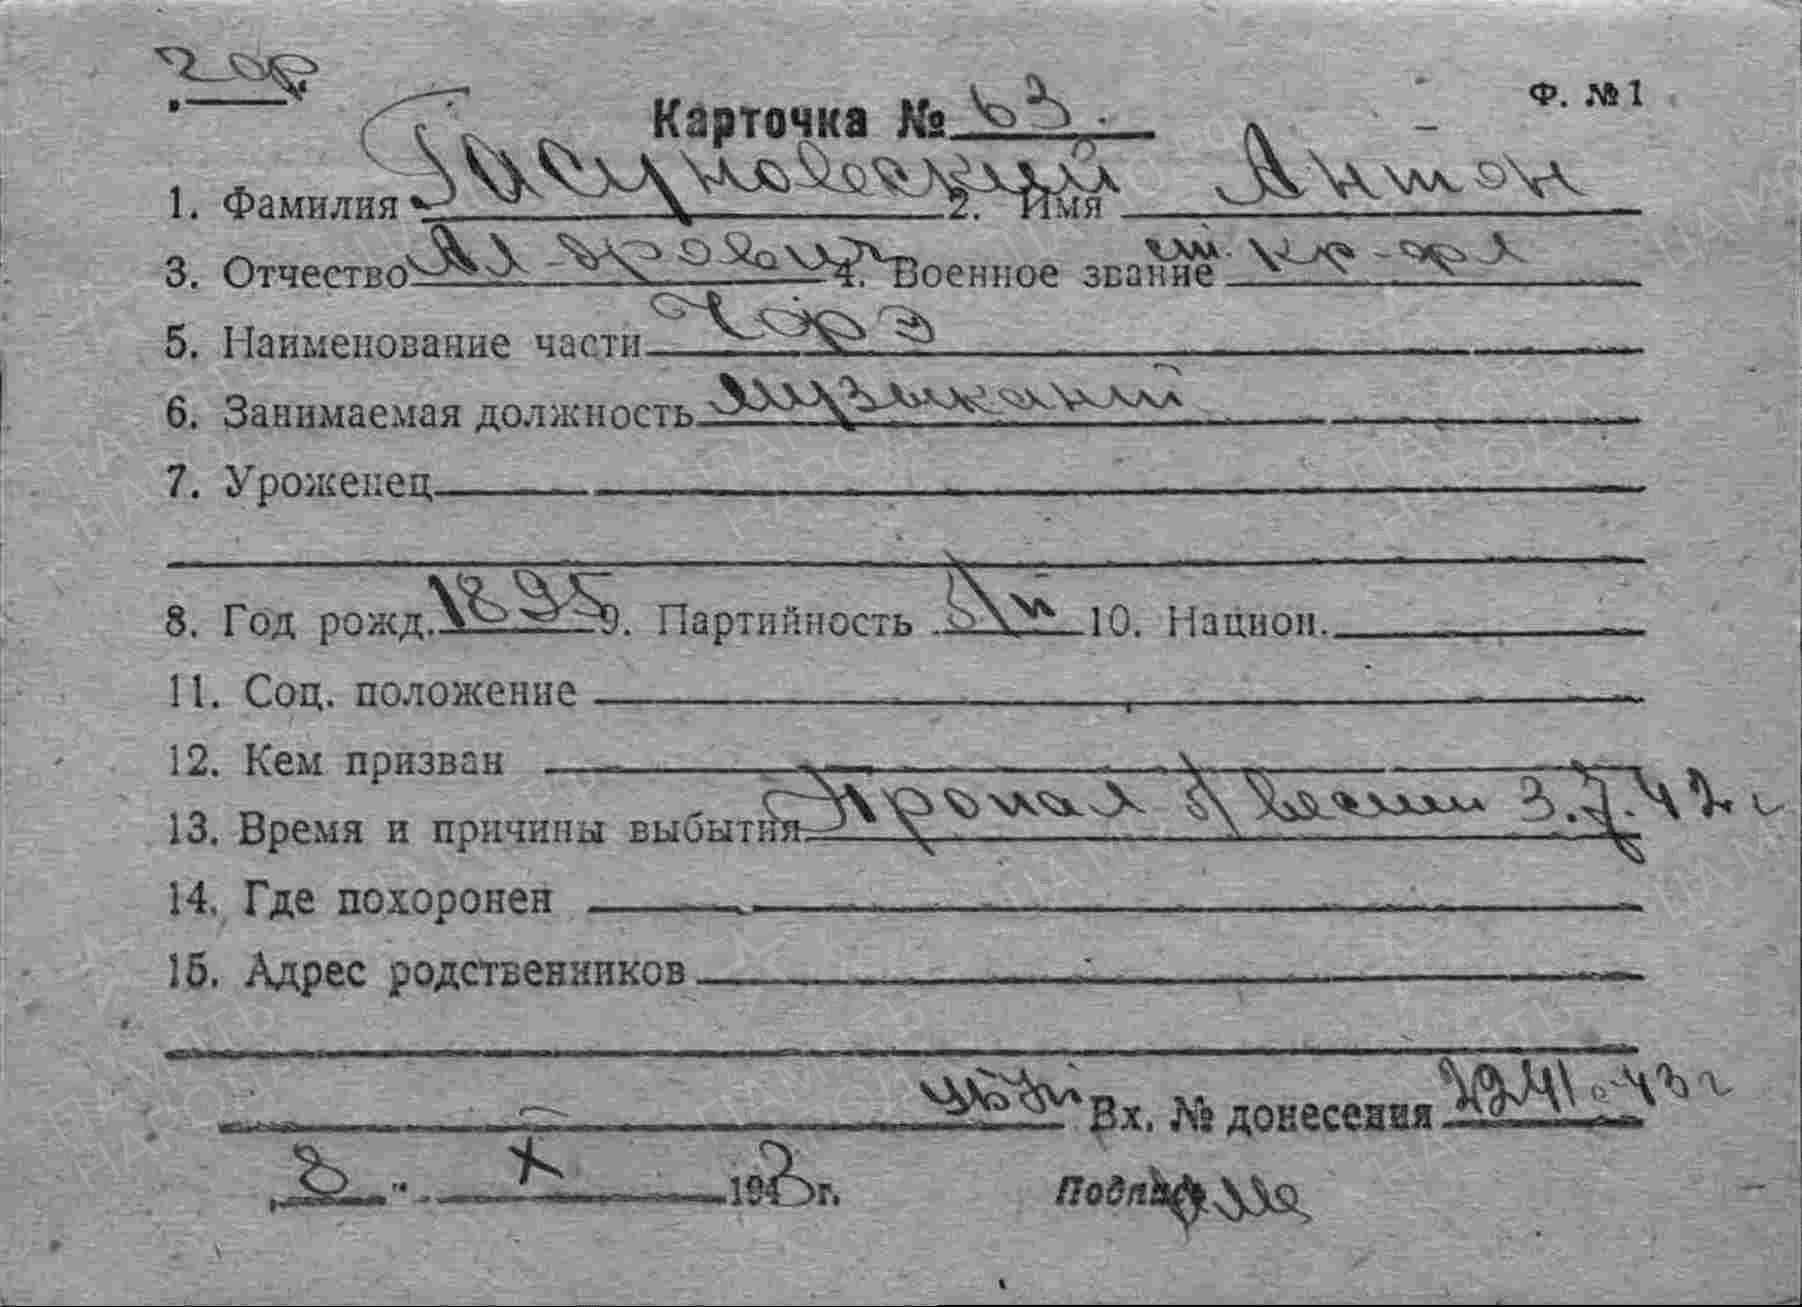 Ф. №1
Карточка № 63.
1. Фамилия Гасуновский 2. Имя Антон
3. Отчество Ал-дрович 4. Военное звание ст. кр-фл
5. Наименование части
6. Занимаемая должность музыкант
7. Уроженец
8. Год рожд. 1895 9. Партийность б/п 10. Национ.
11. Соц. положение
12. Кем призван
13. Время и причины выбытия Пропал б/вести 3.7.42 г
14. Где похоронен
15. Адрес родственников
Вх. № донесения 2241с-43 г
8 " X 1943 г. Подпись